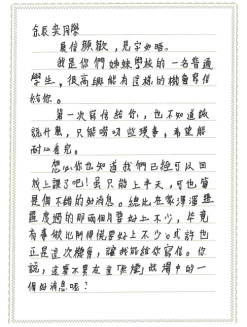 見信歡歡，見字如晤。
我是你們姊妹學校的一名普通
學生，很高興能有這樣的機會寫信
給你。
第一次寫信給你，也不知道該
說什麼，只能嘮叨些瑣事，希望能
耐心看完。
想必你也知道我們已經可以回
校上課了吧！雖只能上半天，可也算
是個不錯的好消息。總比在家渾渾噩
噩度過的那兩個月要好上不少，畢竟
有事做比閒得慌要好上不少。或許也
正是這次機會，讓我能給你寫信。你
說，這算不算在這「疫情」故事中的一
個好消息呢？